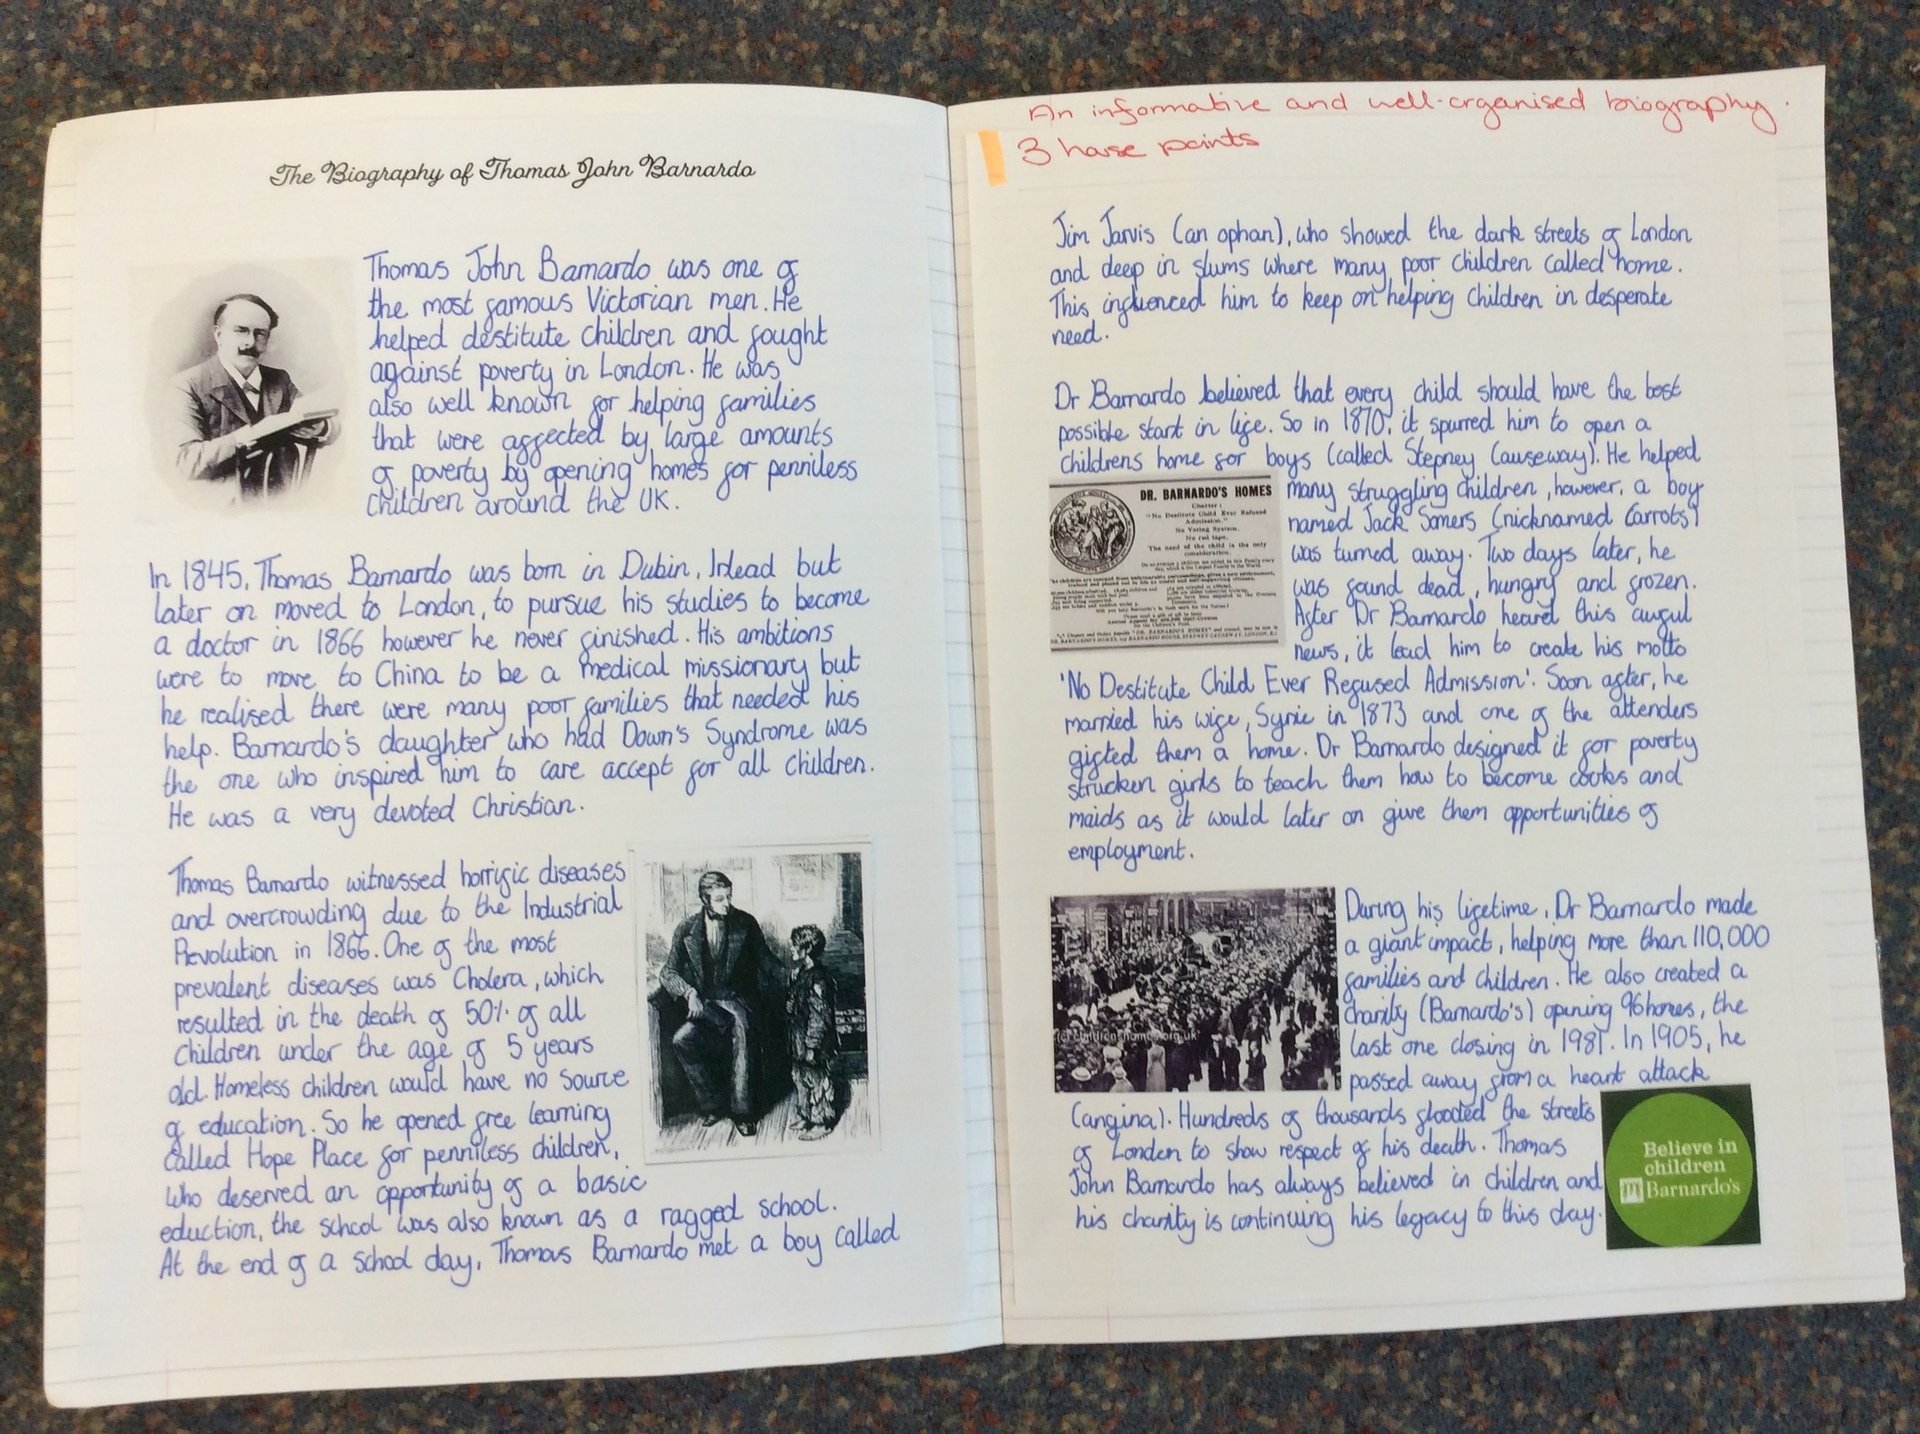 The Biography of Thomas John Barnardo
Thomas John Barnardo was one of
the most famous Victorian men. He
helped destitute children and fought
against poverty in London. He was
also well known for helping families
that were affected by large amounts
of poverty by opening homes for penniless
children around the UK.
In 1845, Thomas Barnardo was born in Dubin, Irlead but
later on moved to London, to pursue his studies to become
a doctor in 1866 however he never finished. His ambitions
were to move to China to be a medical missionary but
he realised there were many poor families that needed his
help. Barnardo's daughter who had Down's Syndrome was
the one who inspired him to care accept for all children.
He was a very devoted Christian.
Thomas Barnardo witnessed horrific diseases
and overcrowding due to the Industrial
Revolution in 1866. One of the most
prevalent diseases was Cholera, which
resulted in the death of 50% of all
children under the age of 5 years
old. Homeless children would have no source
of education. So he opened free learning
called Hope Place for penniless children,
who deserved an opportunity of a basic
eduction, the school was also known as a ragged school.
At the end of a school day, Thomas Barnardo met a boy called
An informative and well-organised biography.
3 house points
Jim Jarvis (an ophan), who showed the dark streets of London
and deep in slums where many poor children called home.
This influenced him to keep on helping children in desperate
need.
Dr Barnardo believed that every child should have the best
possible start in life. So in 1870, it spurred him to open a
childrens home for boys (called Stepney Causeway). He helped
many struggling children, however, a boy
named Jack Somers (nicknamed Carrots)
was turned away. Two days later, he
was found dead, hungry and frozen.
After Dr Barnardo heard this awful
news, it lead him to create his motto
'No Destitute Child Ever Refused Admission'. Soon after, he
married his wife, Syrie in 1873 and one of the attenders
gifted them a home. Dr Barnardo designed it for poverty
strucken girls to teach them how to become cooks and
maids as it would later on give them opportunities of
employment.
DR. BARNARDO'S HOMES
Charter:
"No Destitute Child Ever Refused
Admission."
No Voting System.
No red tape.
The need of the child is the only
consideration.
During his lifetime, Dr Barnardo made
a giant impact, helping more than 110,000
families and children. He also created a
charity (Barnardo's) opening 96 homes, the
last one closing in 1981. In 1905, he
passed away from a heart attack
(angina). Hundreds of thousands flooded the streets
of London to show respect of his death. Thomas
John Barnardo has always believed in children and
his charity is continuing his legacy to this day.
childrenshomes.org.uk
Believe in
children
Barnardo's